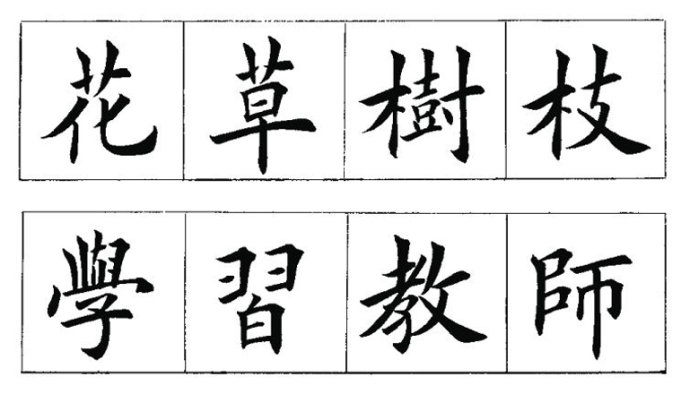 花草樹枝
學習教師